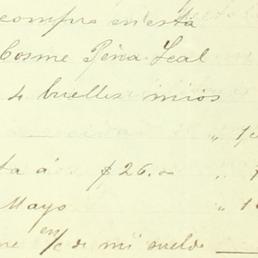 compra en esta
Cosme Peña Leal
4 bueltes mios
" 1
ta á $26.00 " 1
Mayo " 1
en
e/c de mi sueldo